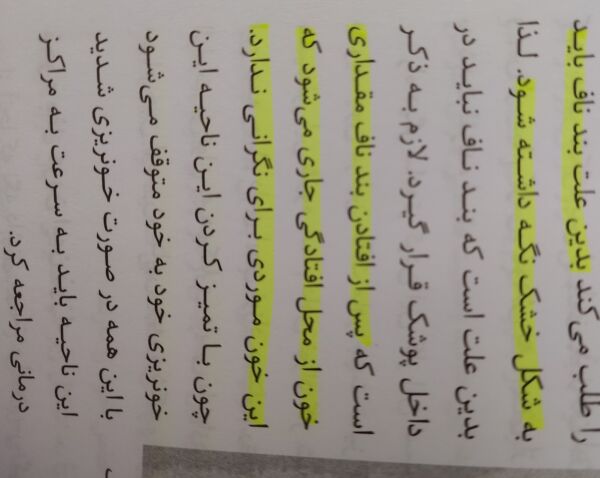 را طلب می‌کند بدین علت بند ناف باید
به شکل خشک نگه داشته شود. لذا
بدین علت است که بند ناف نباید در
داخل پوشک قرار گیرد. لازم به ذکر
است که پس از افتادن بند ناف مقداری
خون از محل افتادگی جاری می‌شود که
این خون موردی برای نگرانی ندارد.
چون با تمیز کردن این ناحیه این
خونریزی خود به خود متوقف می‌شود
با این همه در صورت خونریزی شدید
این ناحیه باید به سرعت به مراکز
درمانی مراجعه کرد.